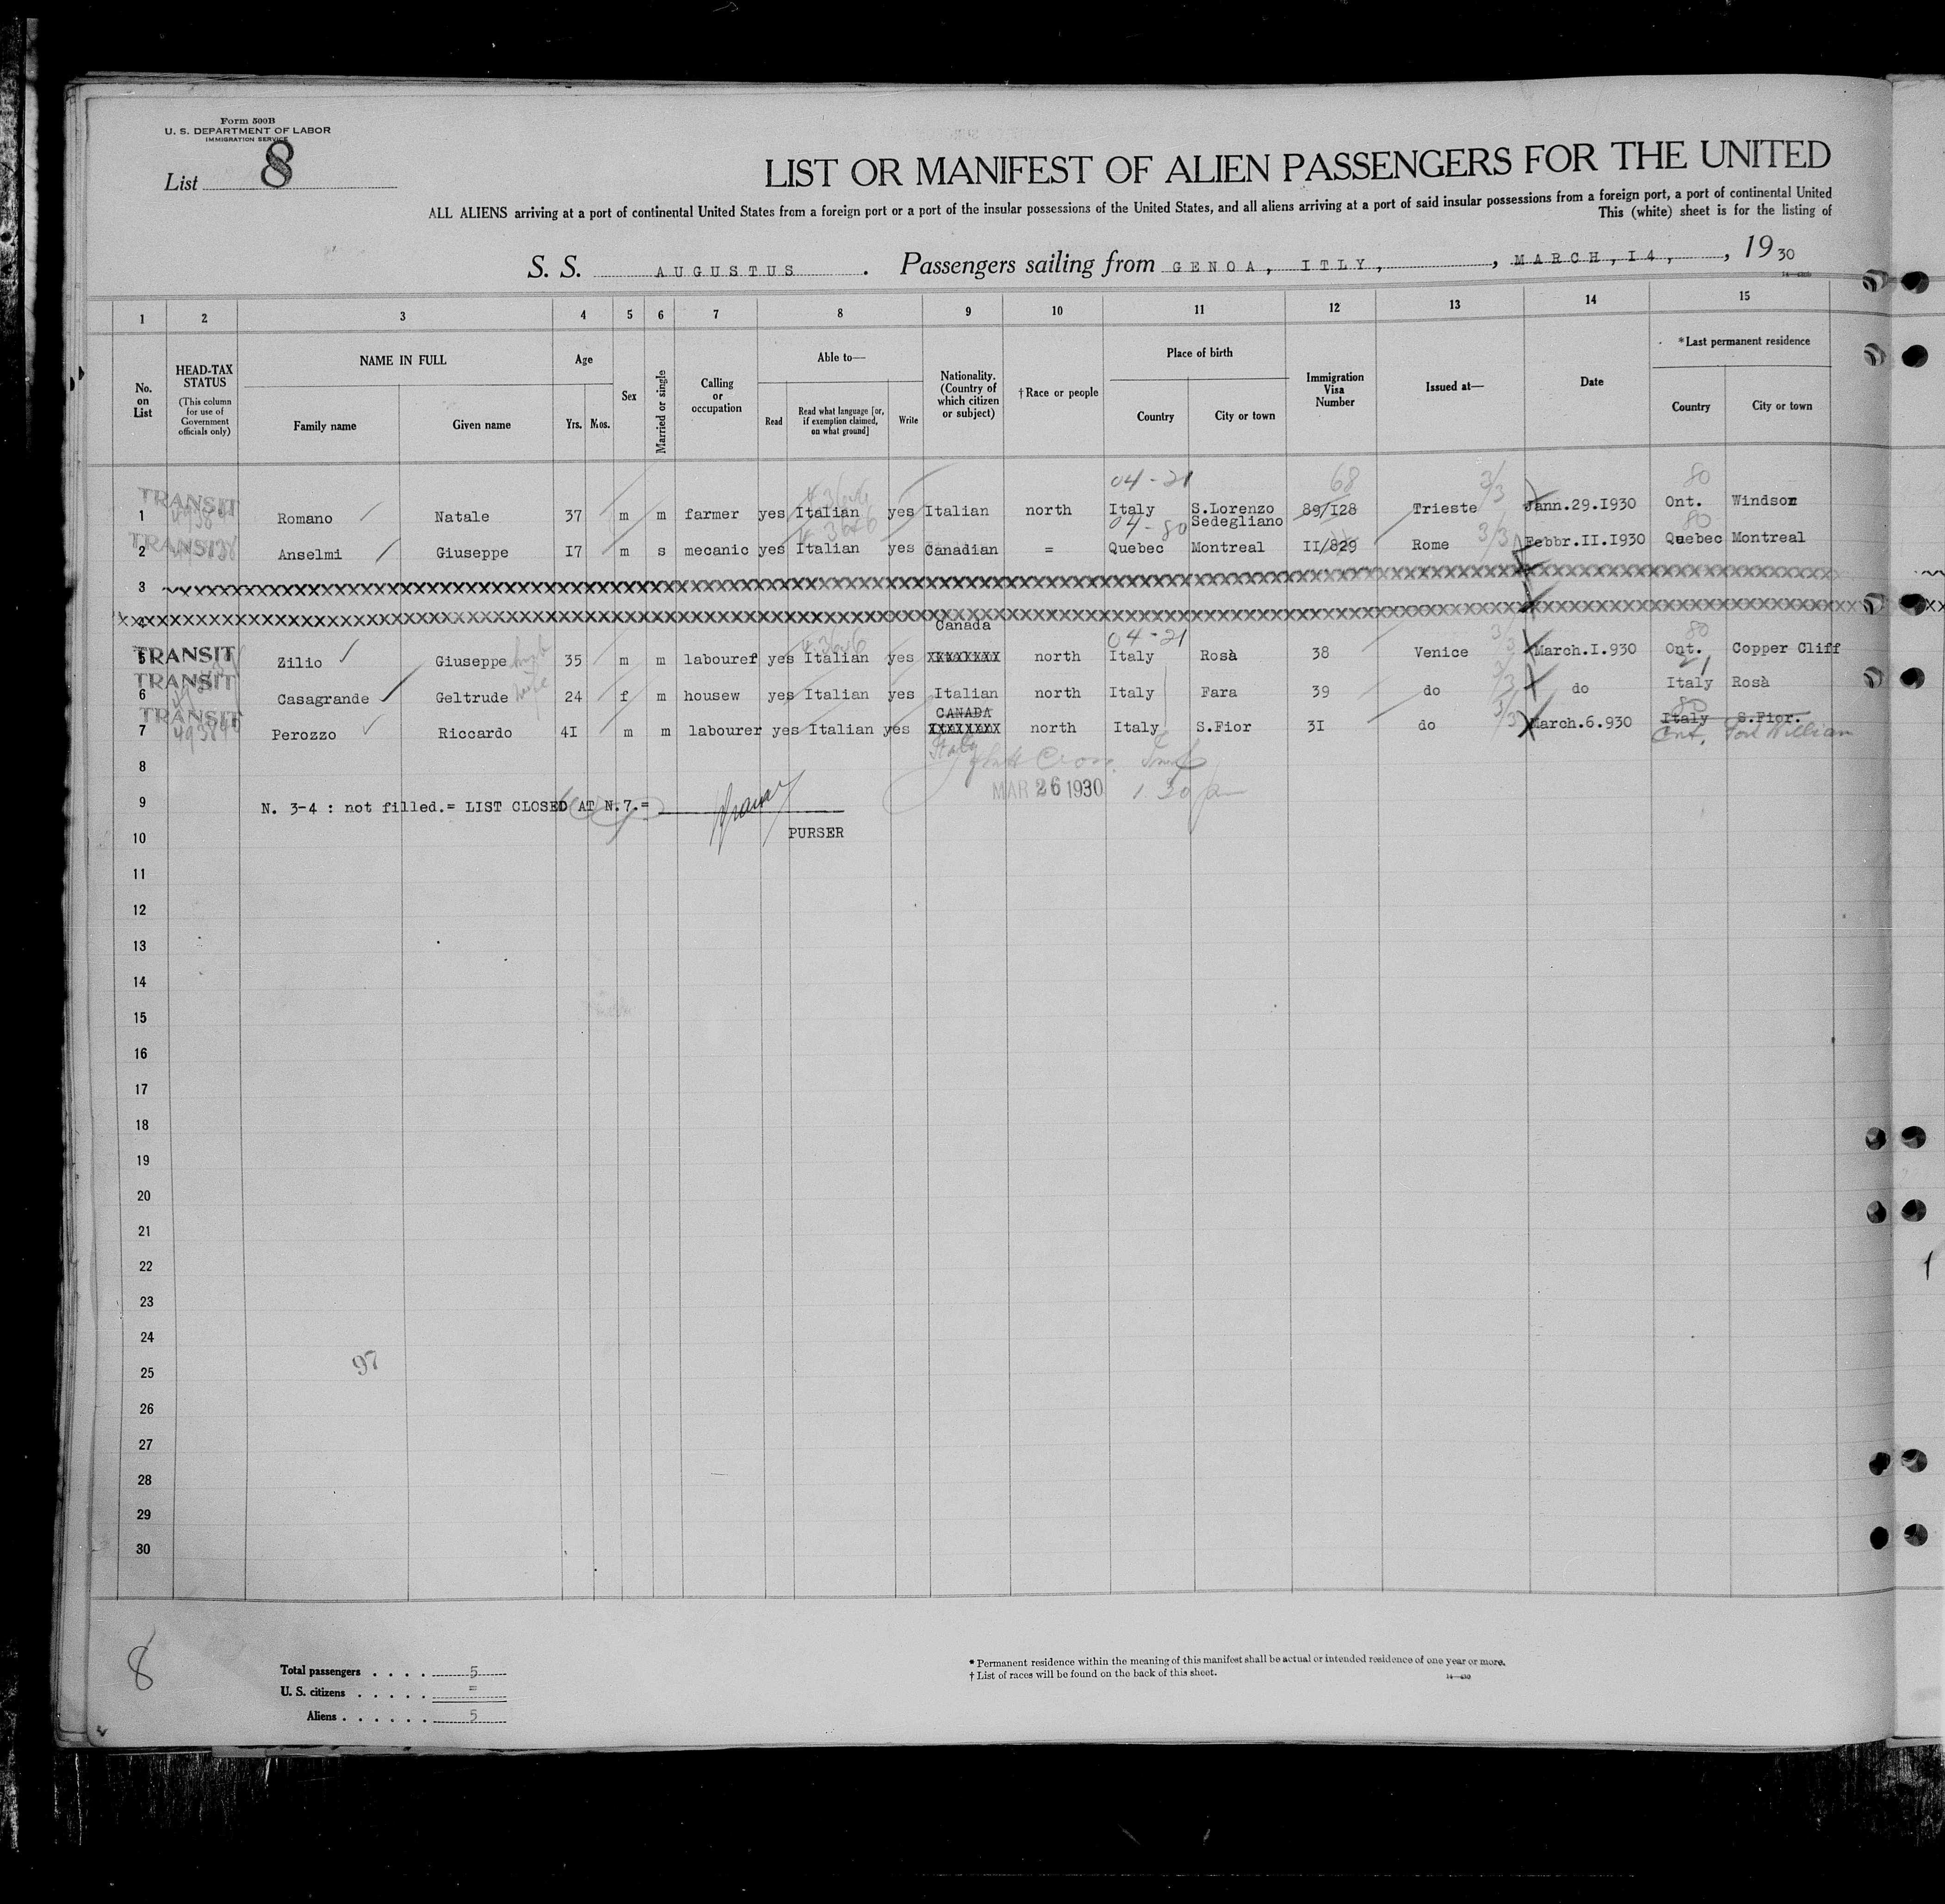 Form 500B
U. S. DEPARTMENT OF LABOR
IMMIGRATION SERVICE
List 8
LIST OR MANIFEST OF ALIEN PASSENGERS FOR THE UNITED
ALL ALIENS arriving at a port of continental United States from a foreign port or a port of the insular possessions of the United States, and all aliens arriving at a port of said insular possessions from a foreign port, a port of continental United
This (white) sheet is for the listing of
S. S. AUGUSTUS. Passengers sailing from GENOA, ITLY, , MARCH,I4, , 1930
1 2 3 4 5 6 7 8 9 10 11 12 13 14 15
No. on List
HEAD-TAX STATUS (This column for use of Government officials only)
NAME IN FULL
Family name Given name
Age
Yrs. Mos.
Sex
Married or single
Calling or occupation
Able to—
Read Read what language [or, if exemption claimed, on what ground] Write
Nationality. (Country of which citizen or subject)
†Race or people
Place of birth
Country City or town
Immigration Visa Number
Issued at—
Date
*Last permanent residence
Country City or town
04-21 68 3/3 80
TRANSIT
1 Romano Natale 37 m m farmer yes Italian yes Italian north Italy S.Lorenzo Sedegliano 89/I28 Trieste Jann.29.I930 Ont. Windsor
04-80 3/3 80
TRANSIT
2 Anselmi Giuseppe I7 m s mecanic yes Italian yes Canadian = Quebec Montreal II/829 Rome Febbr.II.I930 Quebec Montreal
3
4
Canada 04-21 3/3 80
TRANSIT
5 Zilio Giuseppe 35 m m labourer yes Italian yes XXXXXXXX north Italy Rosà 38 Venice March.I.930 Ont. Copper Cliff
TRANSIT 3/3 21
6 Casagrande Geltrude wife 24 f m housew yes Italian yes Italian north Italy Fara 39 do do Italy Rosà
TRANSIT CANADA 3/3 80
7 Perozzo Riccardo 4I m m labourer yes Italian yes XXXXXXXX north Italy S.Fior 3I do March.6.930 Italy S.Fior.
Italy Ont. Fort William
8
MAR 26 1930 1 30 pm
9 N. 3-4 : not filled.= LIST CLOSED AT N.7.=
PURSER
10
11
12
13
14
15
16
17
18
19
20
21
22
23
24
97
25
26
27
28
29
30
8
Total passengers . . . . 5
U. S. citizens . . . . . =
Aliens . . . . . . 5
* Permanent residence within the meaning of this manifest shall be actual or intended residence of one year or more.
† List of races will be found on the back of this sheet.